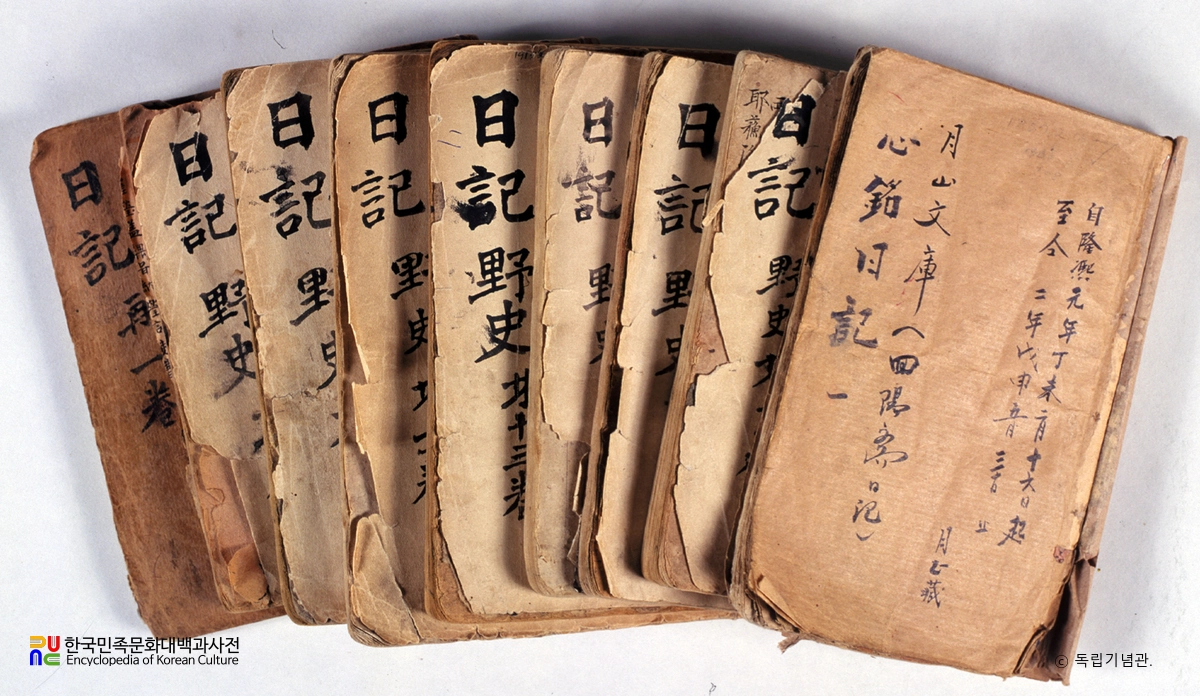 日記
再一卷
日記
野史
日記
野史
日記
野史
日記
野史
共十三卷
日記
野史
日記
野
日記
野史
月山文庫
心銘日記 一
(四陽齋日記)
自隆熙元年丁未二月十六日起
至仝 二年戊申
止
月山藏
한국민족문화대백과사전
Encyclopedia of Korean Culture
© 독립기념관.